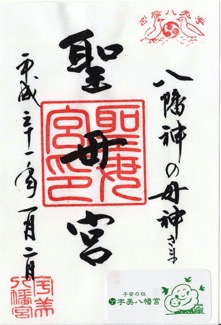 八幡神の母神さま
聖母宮
聖母宮印
平成三十一年一月二日
宇美八幡宮
子安の杜
宇美八幡宮